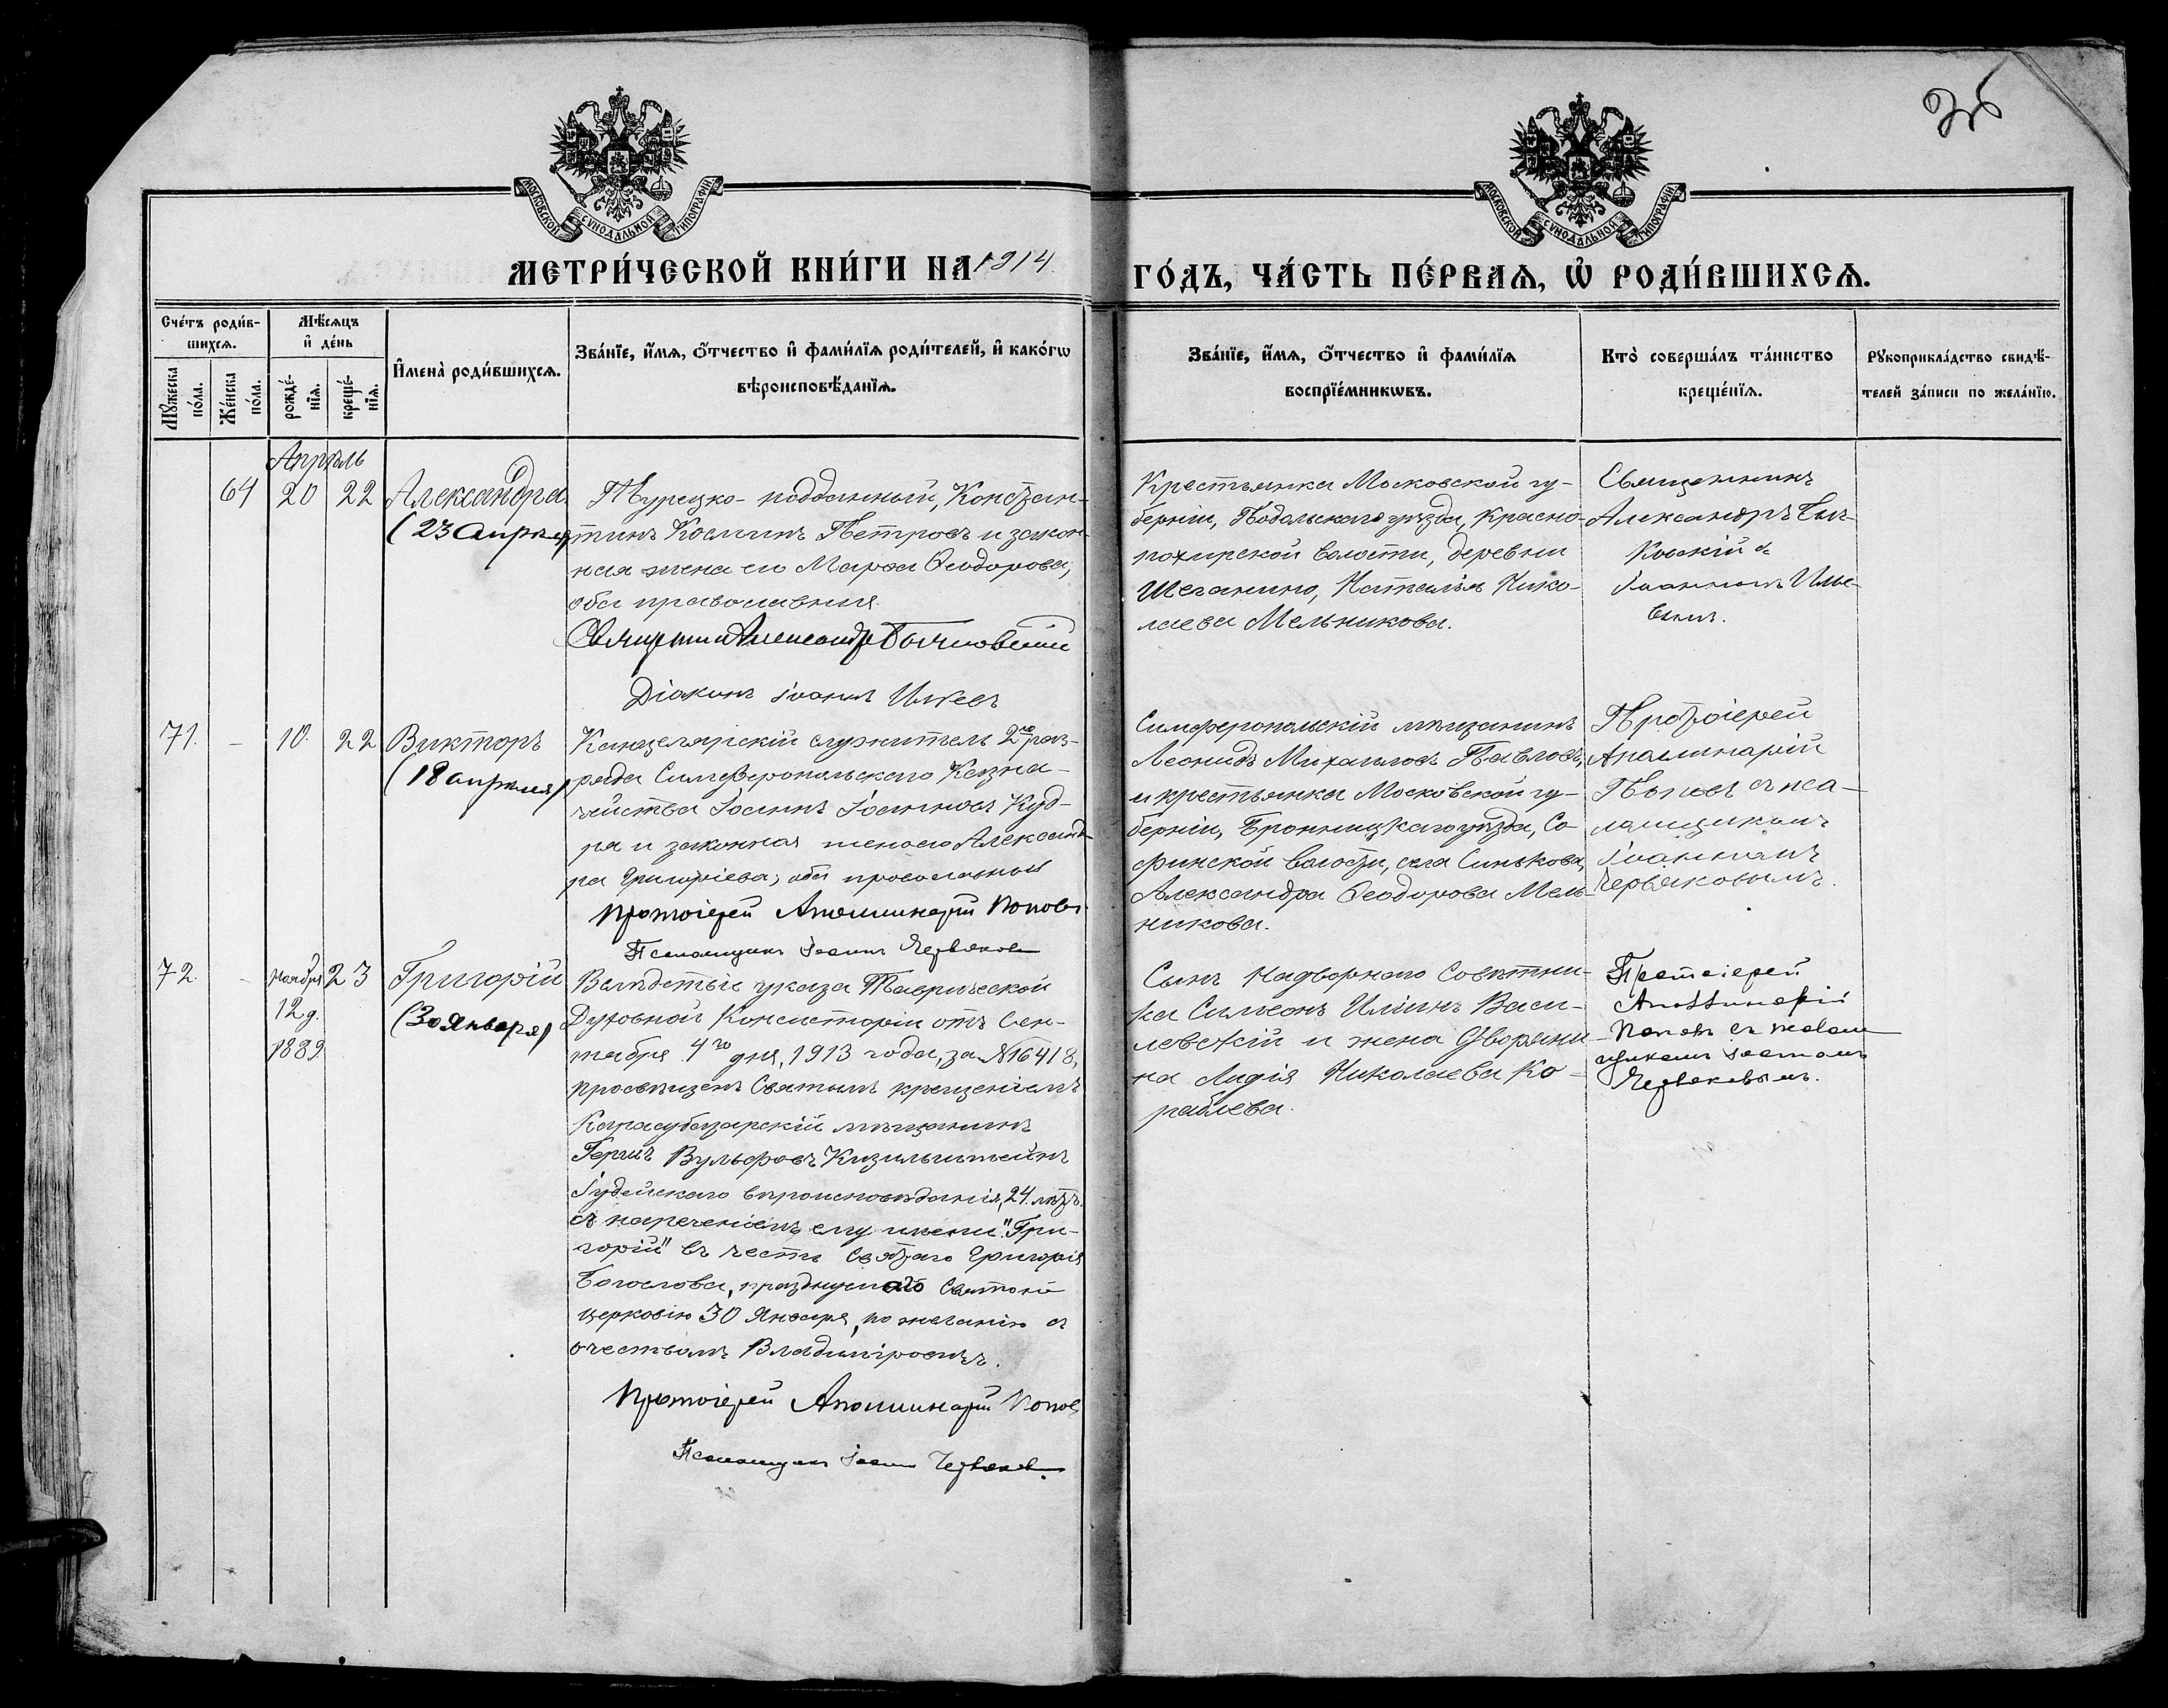 36
МОСКОВСКОЙ СУНОДАЛЬНОЙ ТИПОГРАФІИ
МОСКОВСКОЙ СУНОДАЛЬНОЙ ТИПОГРАФІИ
МЕТРИ́ЧЕСКОЙ КНИ́ГИ НА 1914.
ГО́ДЪ, ЧА́СТЬ ПЕ́РВАѦ, Ѽ РОДИ́ВШИХСѦ.
Сче́тъ роди́в-
шихсѧ.
Мꙋ́жеска
по́ла.
Же́нска
по́ла.
Мѣ́сѧцъ
и҆ де́нь
рожде́-
нїѧ.
креще́-
нїѧ.
И҆мена̀ роди́вшихсѧ.
Зва́нїе, и҆́мѧ, ѻ҆́тчество и҆ фами́лїѧ роди́телей, и҆ како́гѡ
вѣроисповѣ́данїѧ.
Зва́нїе, и҆́мѧ, ѻ҆́тчество и҆ фами́лїѧ
воспрїе́мникѡвъ.
Кто̀ соверша́лъ та́инство
креще́нїѧ.
Рꙋкоприкла́дство свидѣ́-
телей за́писи по жела́нїю.
Апрѣль
64
20
22
Александра
(23 апрѣля)
Турецко-подданный, Констан-
тинъ Космичъ Петровъ и закон-
ная жена его Марѳа Ѳеодорова,
оба православные.
Священникъ Александръ
Діаконъ Іоаннъ
Крестьянка Московской гу-
берніи, Подольскаго уѣзда, Красно-
пахирской волости, деревни
Шеганино, Наталія Нико-
лаева Мельникова.
Священникъ
Александръ
съ
Іоанномъ
71.
-
10.
22
Викторъ
(18 апрѣля)
Канцелярскій служитель 2го раз-
ряда Симферопольскаго Казна-
чейства Іоаннъ Іоанновъ Куд-
ра и законная жена его Александ-
ра Григоріева, оба православные
Протоіерей Аполлинарій Поповъ.
Псаломщикъ Іоаннъ Червяковъ
Симферопольскій мѣщанинъ
Леонидъ Михаиловъ Павловъ,
и крестьянка Московской гу-
берніи, Бронницкаго уѣзда, Со-
финской волости, села Синькова,
Александра Ѳеодорова Мель-
никова.
Протоіерей
Аполинарій
Поповъ съ пса-
ломщикомъ
Іоанномъ
Червяковымъ.
72.
-
ноября
12 д.
1889
23
Григорій
(30 Января)
Вслѣдствіе указа Таврической
Духовной Консисторіи отъ Сен-
тября 4го дня, 1913 года, за №16418,
просвѣщенъ Святымъ крещеніемъ
Карасубазарскій мѣщанинъ
Гершъ Вульфовъ Кизильштейнъ
Іудейскаго вѣроисповѣданія, 24 лѣтъ,
съ нареченіемъ ему имени "Гри-
горій" въ честь Святаго Григорія
Богослова, празднуемаго Святою
церковію 30 Января, по желанію съ
отчествомъ Владиміровичъ.
Протоіерей Аполлинарій Поповъ
Псаломщикъ Іоаннъ Червяковъ.
Сынъ Надворнаго Совѣтни-
ка Симеонъ Иліинъ Васи-
левскій и жена Дворяни-
на Лидія Николаева Ко-
раблева.
Протоіерей
Аполлинарій
Поповъ съ псалом-
щикомъ Іоанномъ
Червяковымъ.